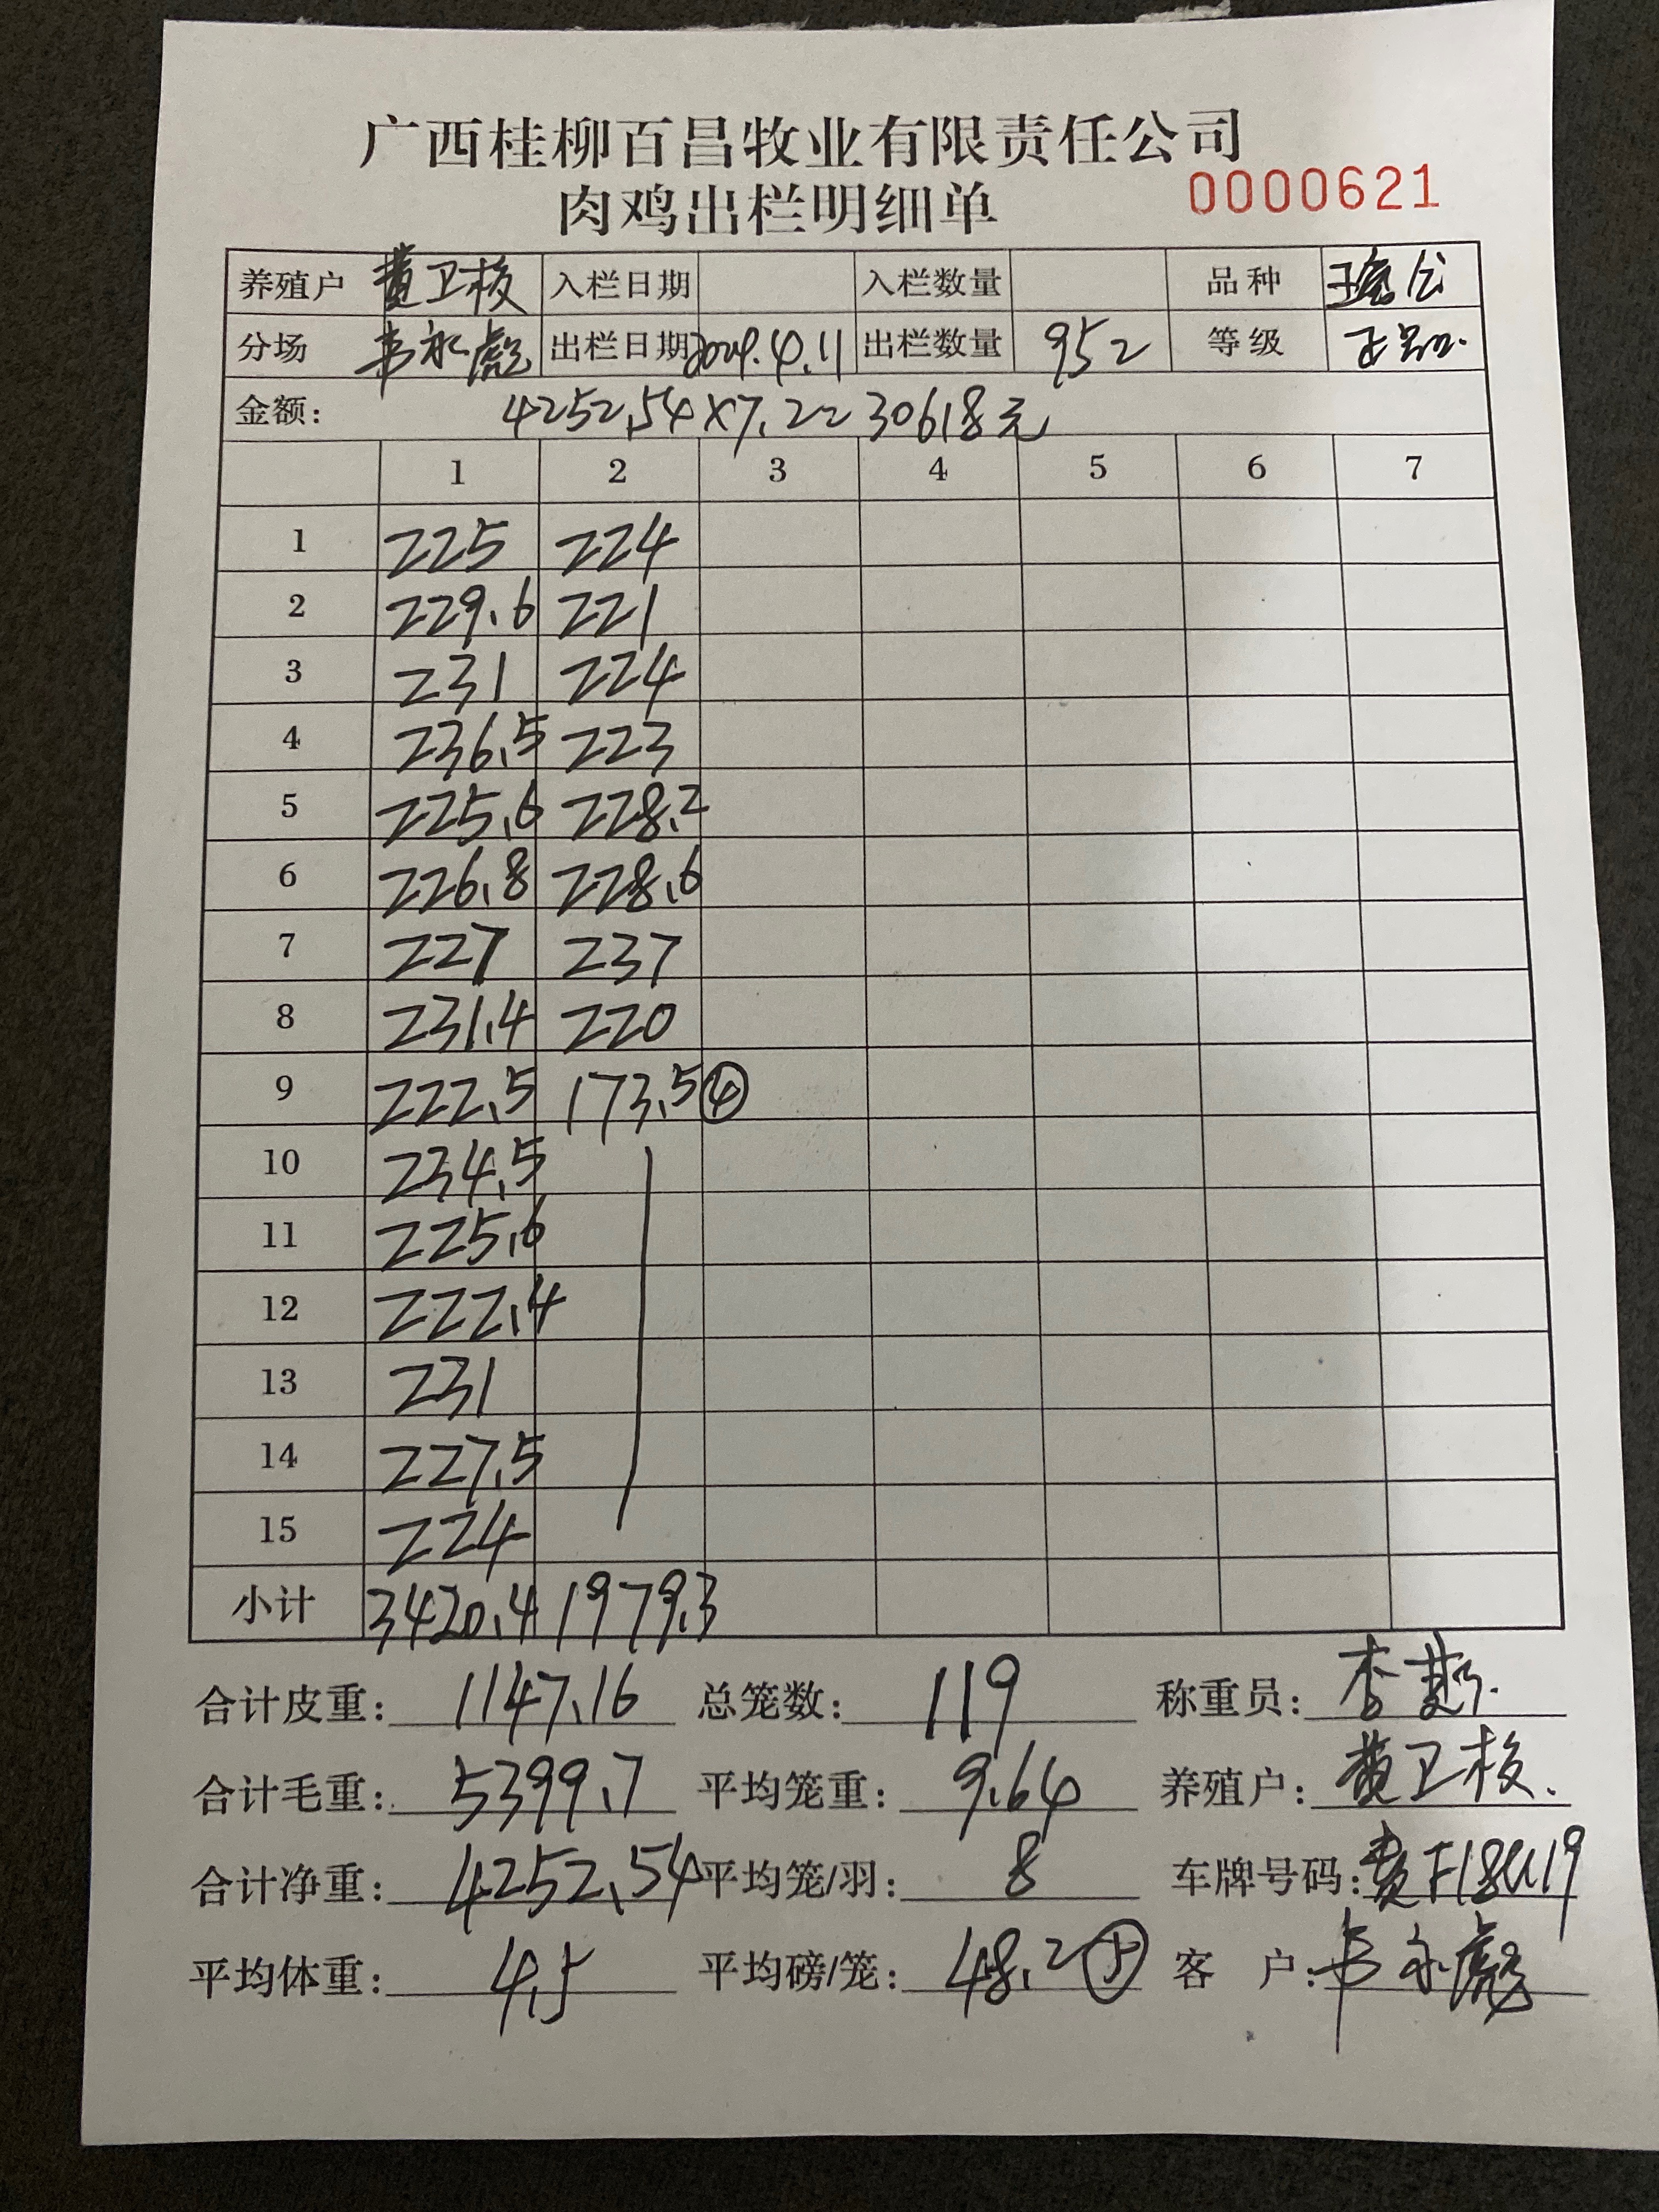 广西桂柳百昌牧业有限责任公司
肉鸡出栏明细单 0000621
养殖户 黄卫核 入栏日期 入栏数量 品种
分场 韦永彪 出栏日期 2024.4.11 出栏数量 952 等级 正品
金额: 4252.54×7.2=30618元
1 2 3 4 5 6 7
1 225 224
2 229.6 221
3 231 224
4 236.5 223
5 225.6 228.2
6 226.8 228.6
7 227 237
8 231.4 220
9 222.5 173.5 ④
10 234.5
11 225.6
12 222.4
13 231
14 227.5
15 224
小计 3420.4 1979.3
合计皮重: 1147.16 总笼数: 119 称重员: 李
合计毛重: 5399.7 平均笼重: 9.64 养殖户: 黄卫核.
合计净重: 4252.54 平均笼/羽: 8 车牌号码:
平均体重: 4.5 平均磅/笼: 48.2 客 户: 韦永彪